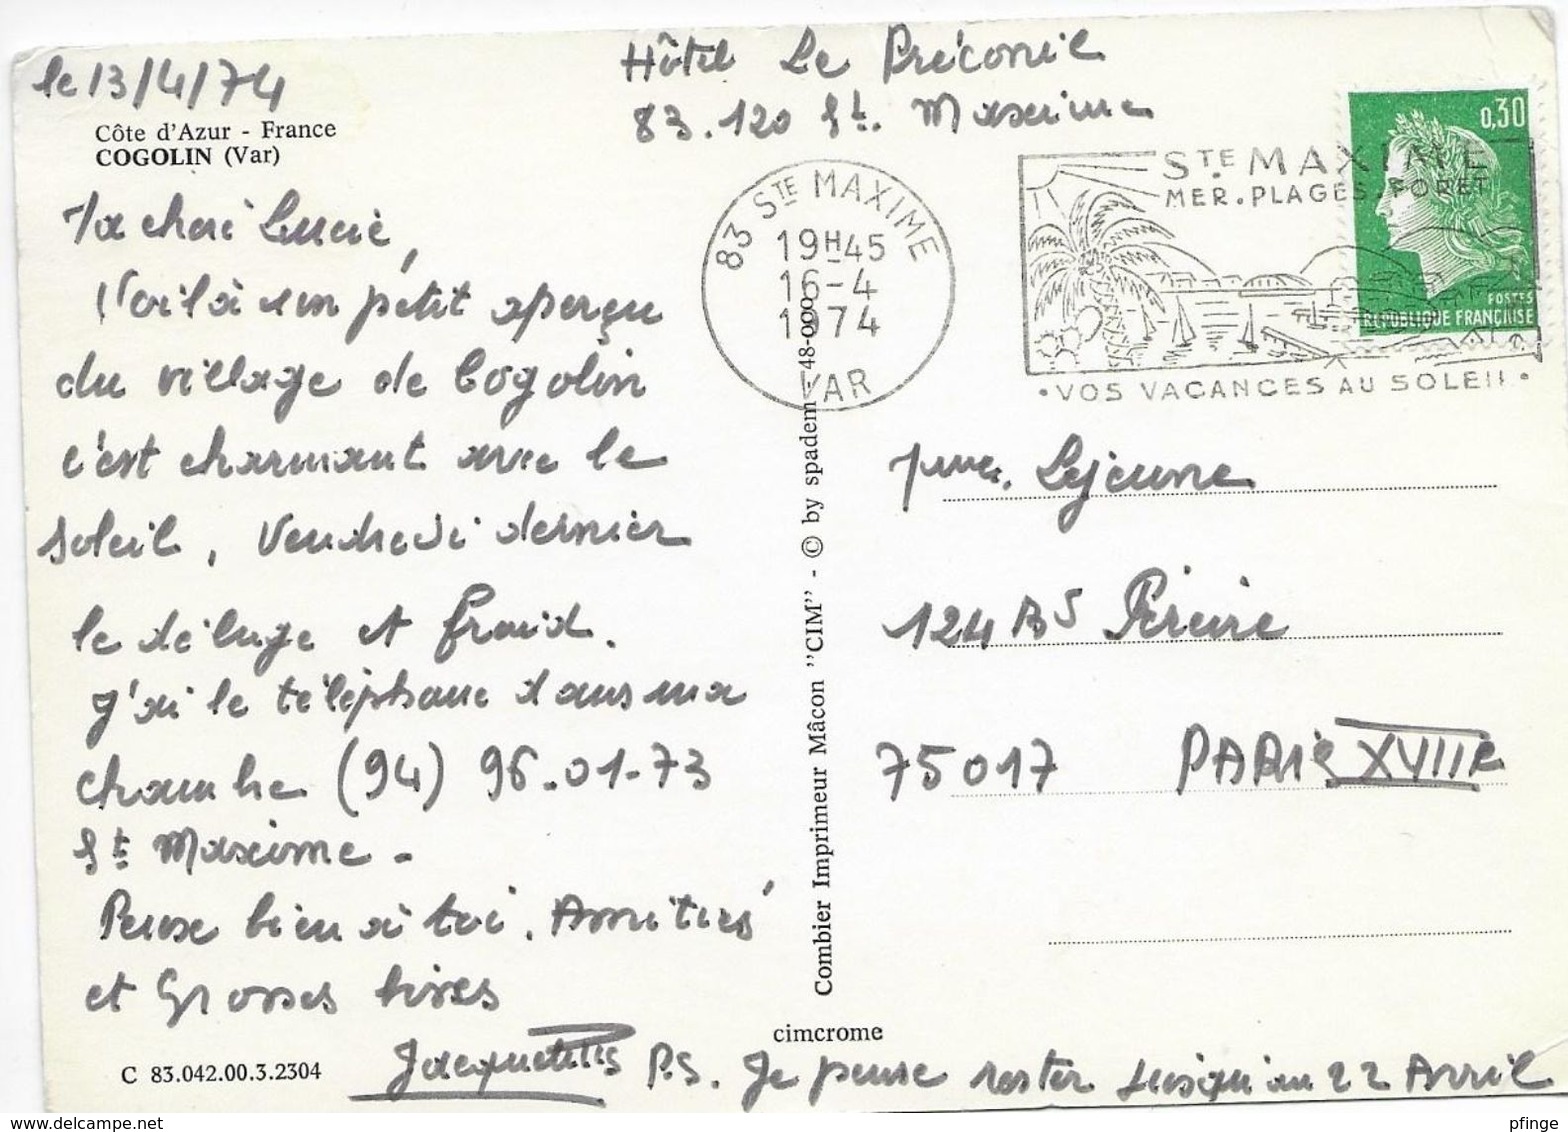 le 13/4/74
Hôtel Le Préconil
83.120 St. Maxime
Côte d'Azur - France
COGOLIN (Var)
0,30
POSTES
REPUBLIQUE FRANÇAISE
83 STE MAXIME
19H45
16-4
1974
VAR
STE MAXIME
MER.PLAGES.FORET
•VOS VACANCES AU SOLEIL•
Ma cheré Lucie,
Voilà un pétit aperçu
du village de Cogolin
c'est charmant avec le
soleil, Vendredi dernier
le déluge et froid.
J'ai le téléphone dans ma
chambre (94) 96.01-73
St Maxime -
Pense bien à toi. Amitiés
et Grosses bises
Jacqueline
P.S. Je pense rester jusqu'au 22 Avril
Mme. Lejeune
124 Bd Péreire
75017 PARIS XVIIe
Combier Imprimeur Mâcon "CIM" - © by spadem 48-000
cimcrome
C 83.042.00.3.2304
pfinge